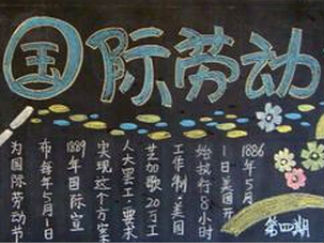 国际劳动
1886年5月
1日美国开
始执行8小时
工作制·美国
芝加歌20万工
人大罢工·要求
实现这个方案
1889年国际宣
布每年5月1日
为国际劳动节
第四期